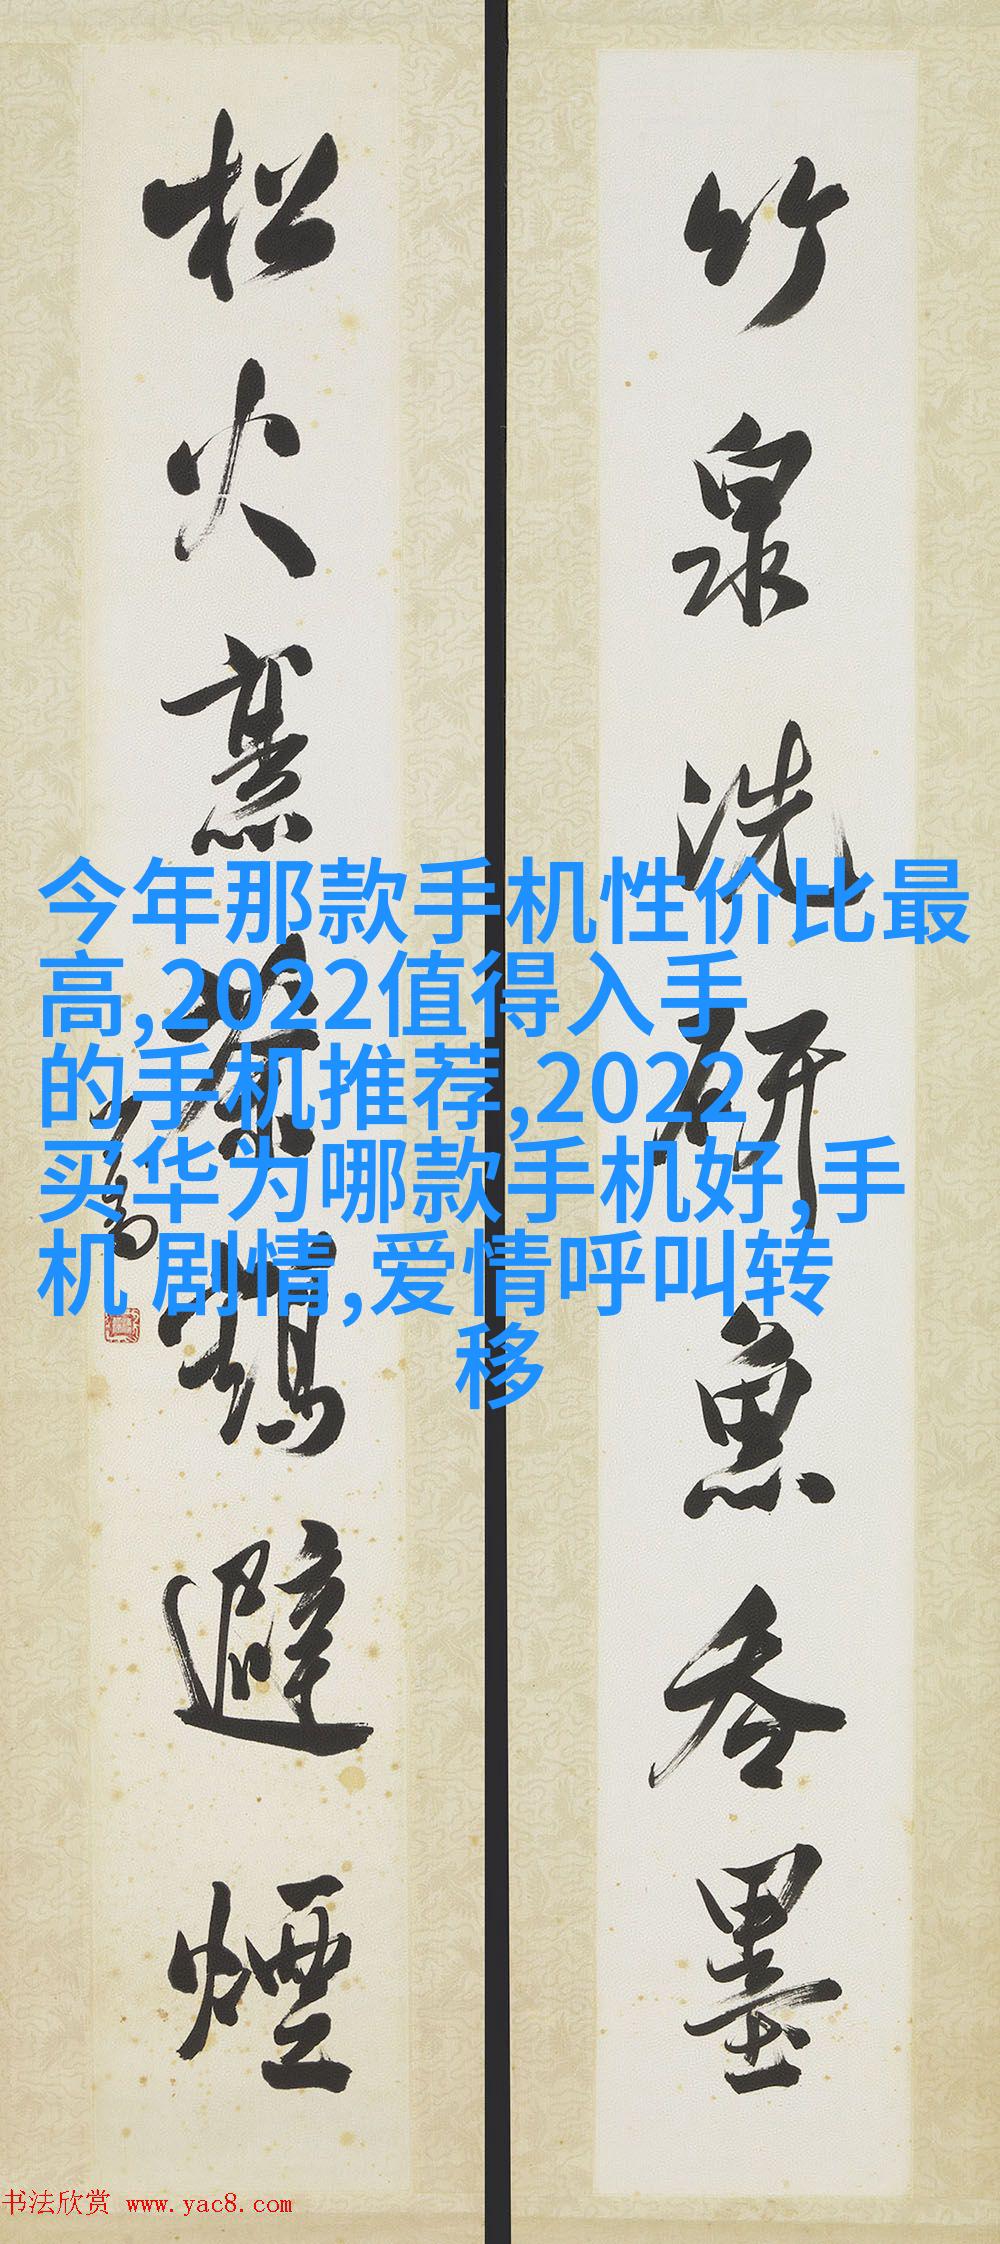 竹泉洗研魚吞墨
松火烹茶鶴避煙
今年那款手机性价比最
高,2022值得入手
的手机推荐,2022
买华为哪款手机好,手
机 剧情,爱情呼叫转
移
书法欣赏 www.yac8.com